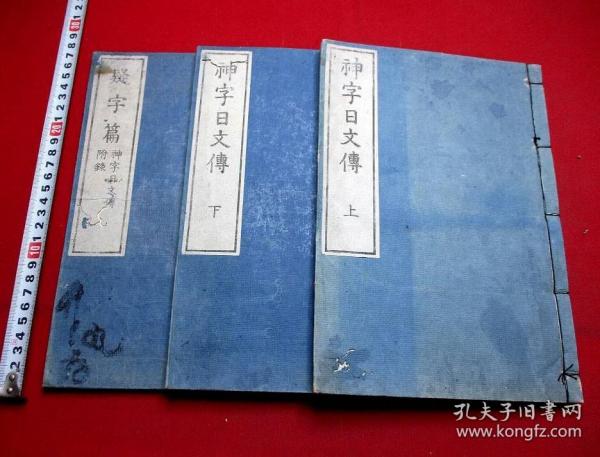 神字日文傳
上
神字日文傳
下
疑字篇
神字日文傳
附錄
孔夫子旧书网
www.kongfz.com